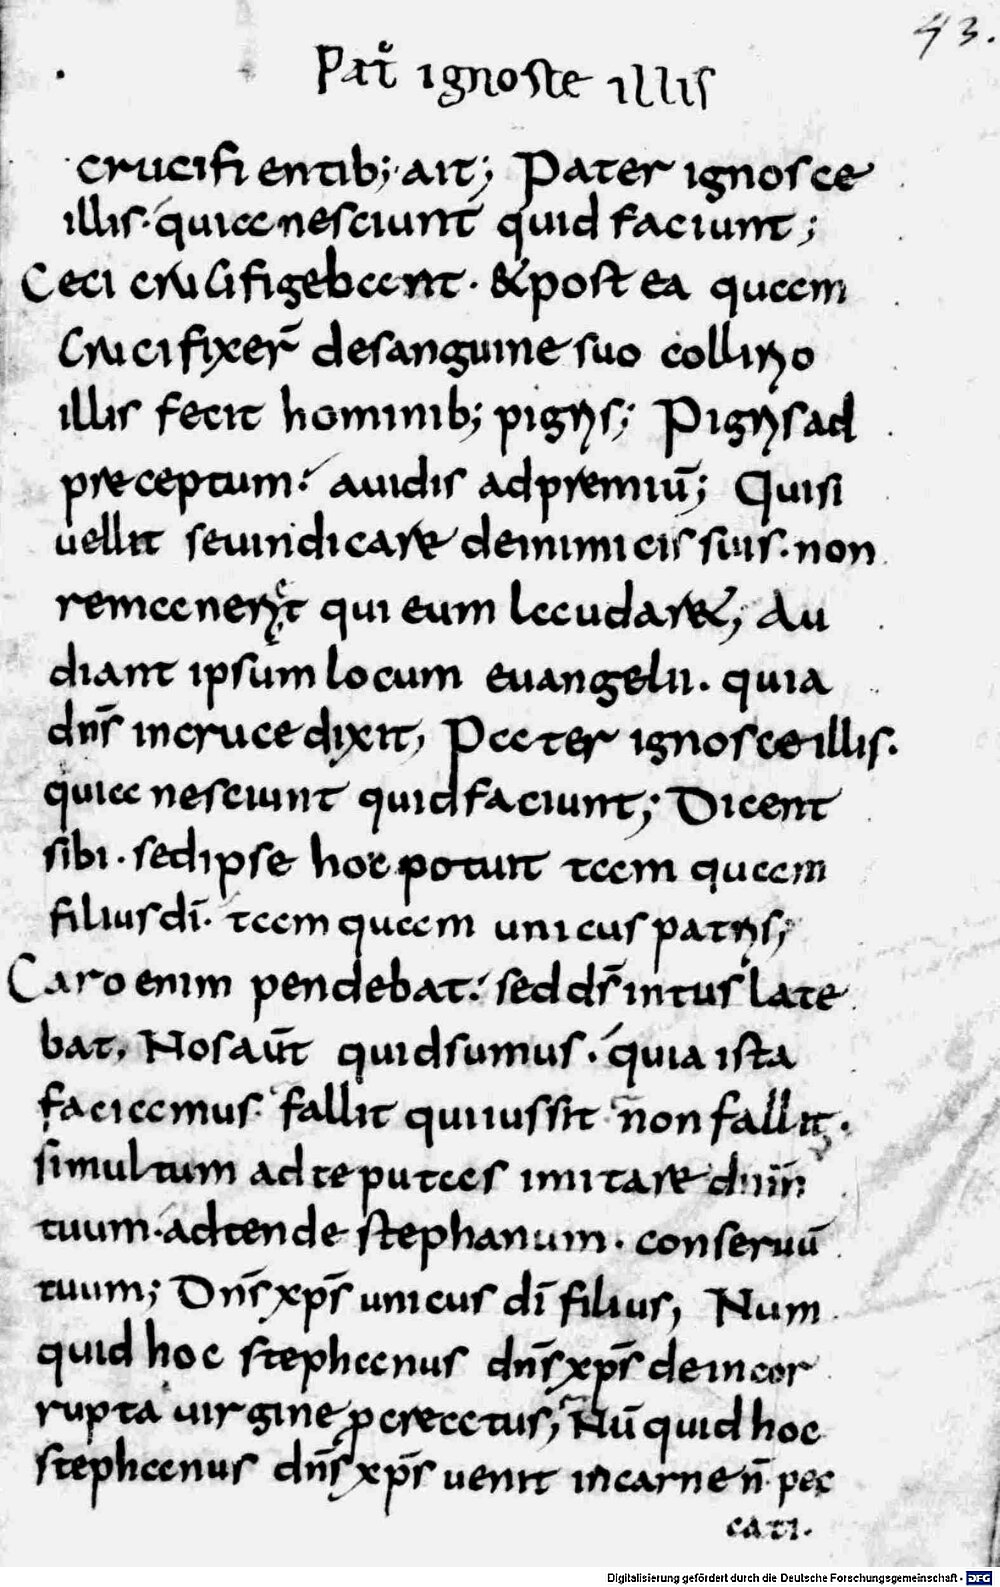 43.
Pat̄ ignoste illis
crucifi entib; ait; Pater ignosce
illis. quia nesciunt quid faciunt;
Ceci crucifigebant. & postea quam
Crucifixer̄ desanguine suo collirio
illis fecit hominib; pigris; Pigris ad
preceptum. auidis adpremiū; Quisi
uellit seuindicare deinimicis suis. non
remaneret qui eum laudaret; Au
diant ipsum locum euangelii. quia
dn̄s incruce dixit, Pater ignosce illis.
quia nesciunt quid faciunt; Dicent
sibi. sed ipse hoc potuit tam quam
filius dī. tam quam unicus patris;
Caro enim pendebat. sed ds̄ intus late
bat, Nos aūt quid sumus. quia ista
faciamus. fallit qui iussit non fallit.
simul tum ad te putas imitare dnm̄
tuum. adtende stephanum. conseruū
tuum; Dn̄s xp̄s unicus dī filius, Num
quid hoc stephanus dn̄s xp̄s de incor
rupta uirgine procreatus, Nū quid hoc
stephanus dn̄s xp̄s uenit incarne n̄ pec
cati.
Digitalisierung gefördert durch die Deutsche Forschungsgemeinschaft - DFG